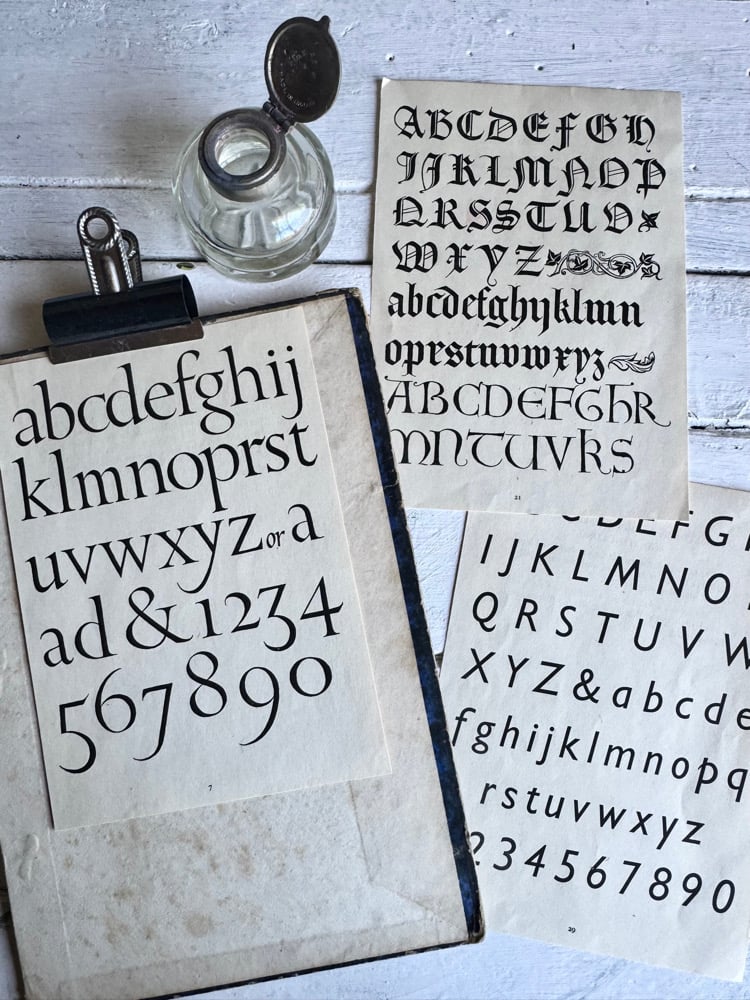 ABCDEFGH
IJKLMNOP
QRSSTUV
WXYZ
abcdefghijklmn
oprstuvwxyz
ABCDEFGHR
MNTUVKS
21
abcdefghij
klmnoprst
uvwxyz or a
ad & 1234
567890
7
DEFG
IJKLMNO
QRSTUVW
XYZ&abcde
fghijklmnopq
rstuvwxyz
234567890
29